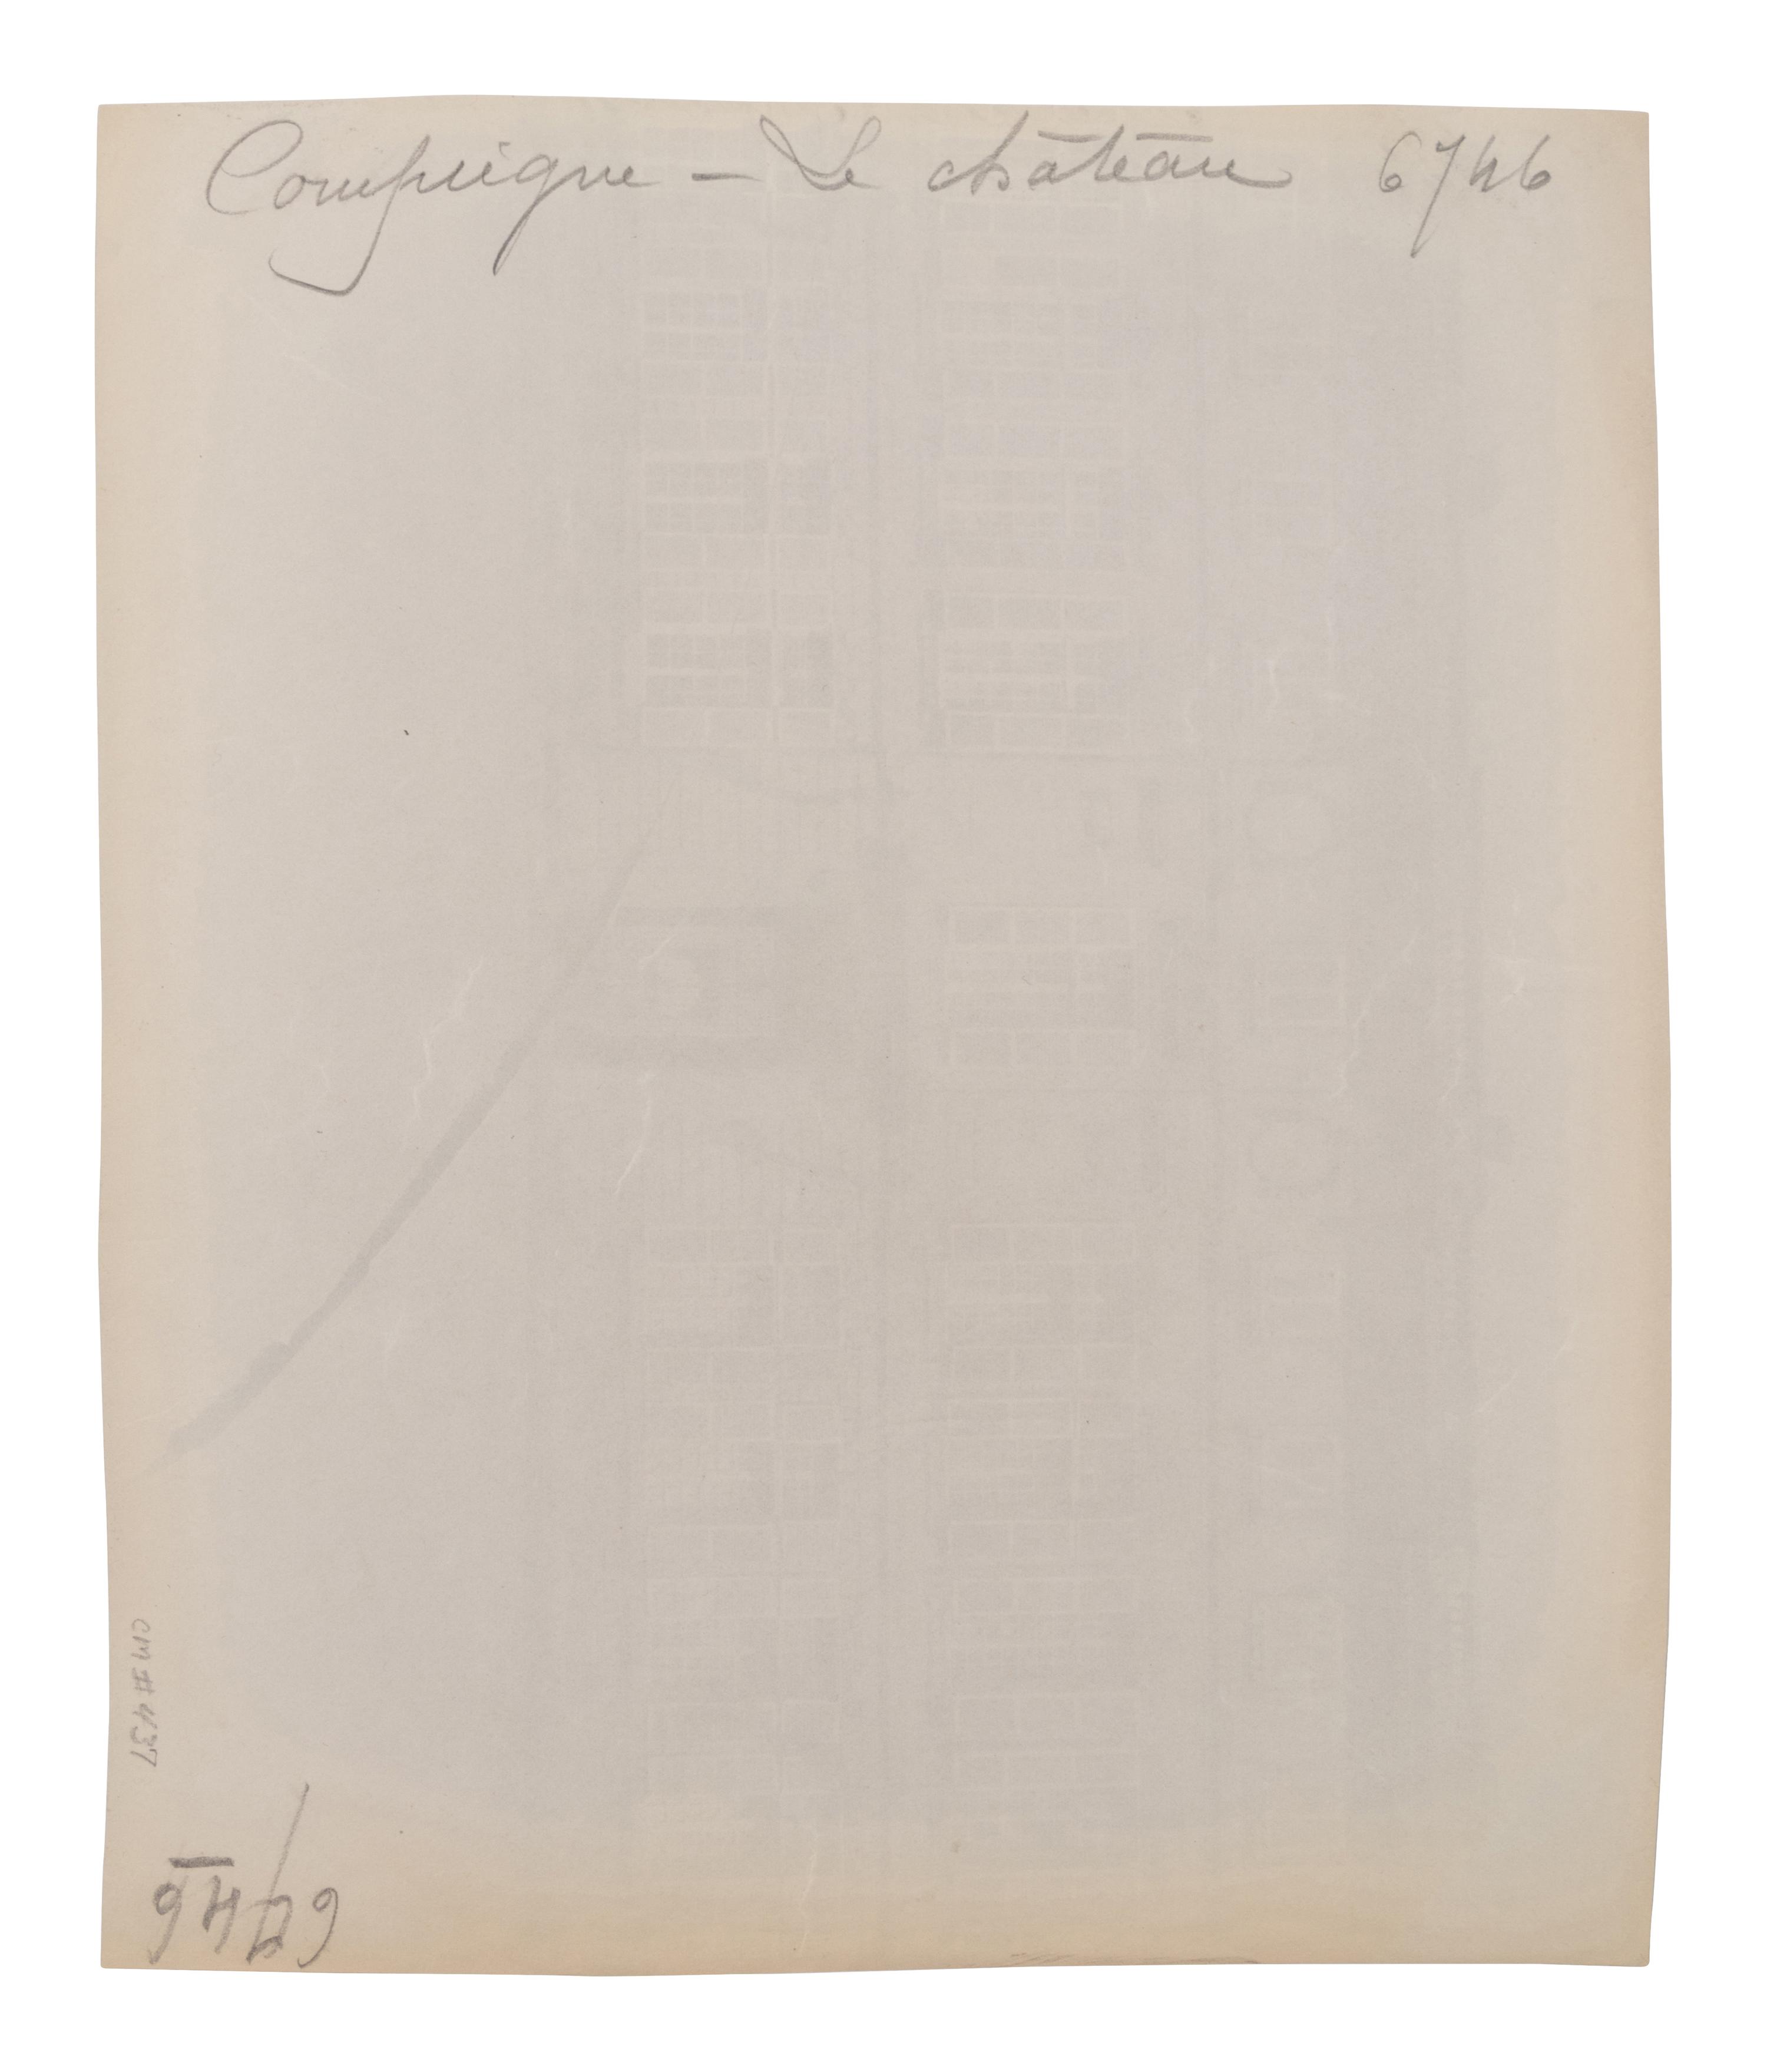 Compiègne - Le château 6746
CM#437
6746